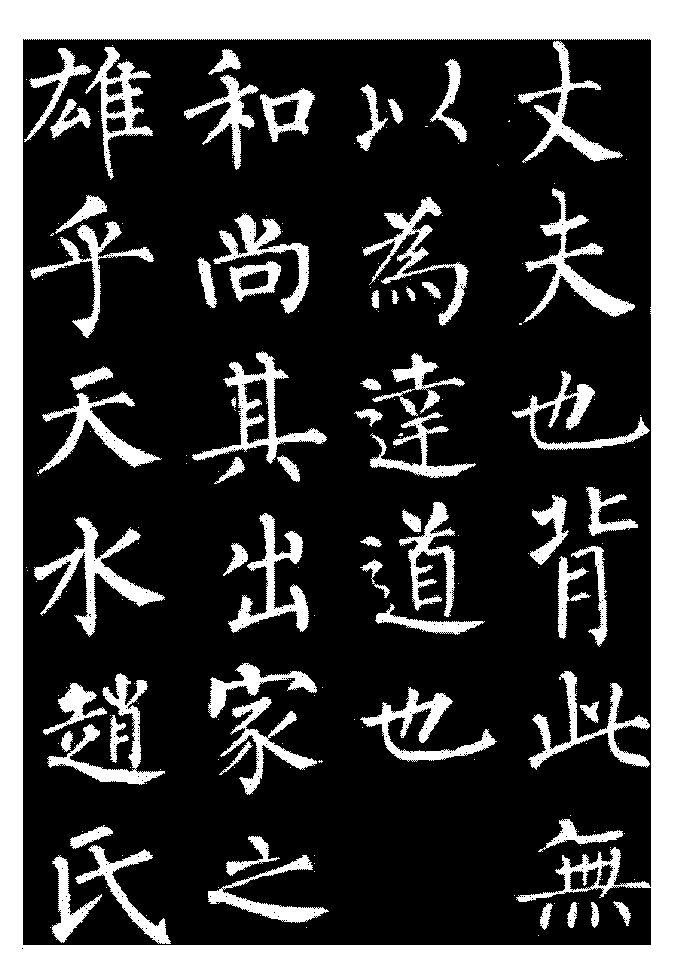 丈夫也背此無
以為達道也
和尚其出家之
雄乎天水趙氏